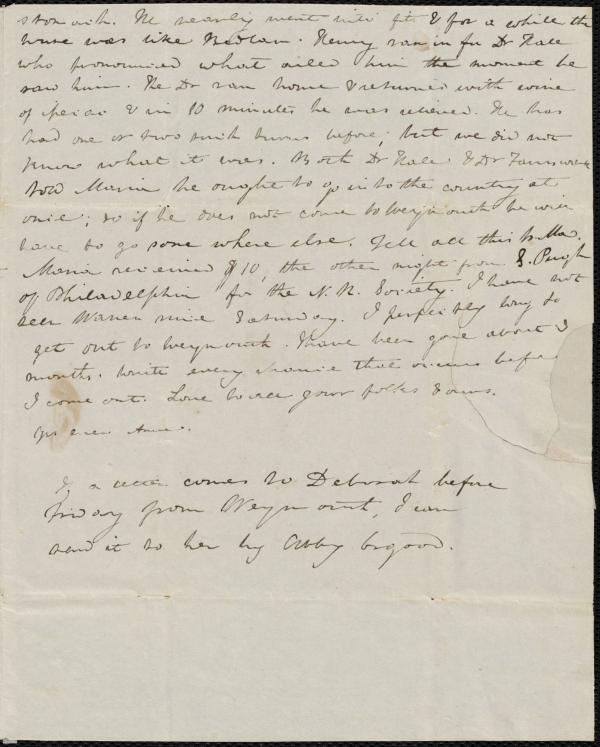 stomach. He nearly went into fits & for a while the
house was like Bedlam. Henry ran in for Dr Hale
who pronounced what ailed him the moment he
saw him. The Dr ran home & returned with wine
of ipecac & in 10 minutes he was relieved. He has
had one or two such turns before, but we did not
know what it was. Both Dr Hale & Dr Farnsworth
told Maria he ought to go into the country at
once; so if he does not come to Weymouth he will
have to go some where else. Tell all this to Ma.
Maria received $10, the other night from S. Pugh
of Philadelphia for the N. R. Society. I have not
seen Warren since Saturday. I perfectly long to
get out to Weymouth. I have been gone about 3
months. Write every chance that occurs before
I come out. Love to all your folks & ours.
yrs ever Anne.
If a letter comes to Deborah before
Friday from Weymouth, I can
send it to her by Abby Osgood.